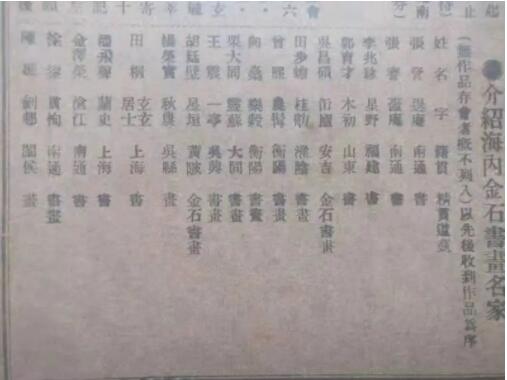 ●介紹海內金石書畫名家
(無作品存會者概不列入)以先後收到作品為序
姓名 字 籍貫
張詧 退庵 南通 書
張謇 嗇庵 南通 書
李兆 星野 福建 書
郭育才 木初 山東 書
吳昌碩 缶廬 安吉 金石書畫
田步蟾 桂舫 淮陰 書
曾熙 農髯 衡陽 書畫
向燊 樂穀 衡陽 書畫
梁大同 靈蘇 大同 書畫
王震 一亭 吳興 書畫
胡廷璧 星垣 黃陂 金石書畫
楊榮寶 秋農 吳縣 書
田桐 玄玄居士 上海 書
潘飛聲 蘭史 上海 書
金澤榮 滄江 南通 書
徐鋆 貫恂 南通 書畫
陳 閩侯 書